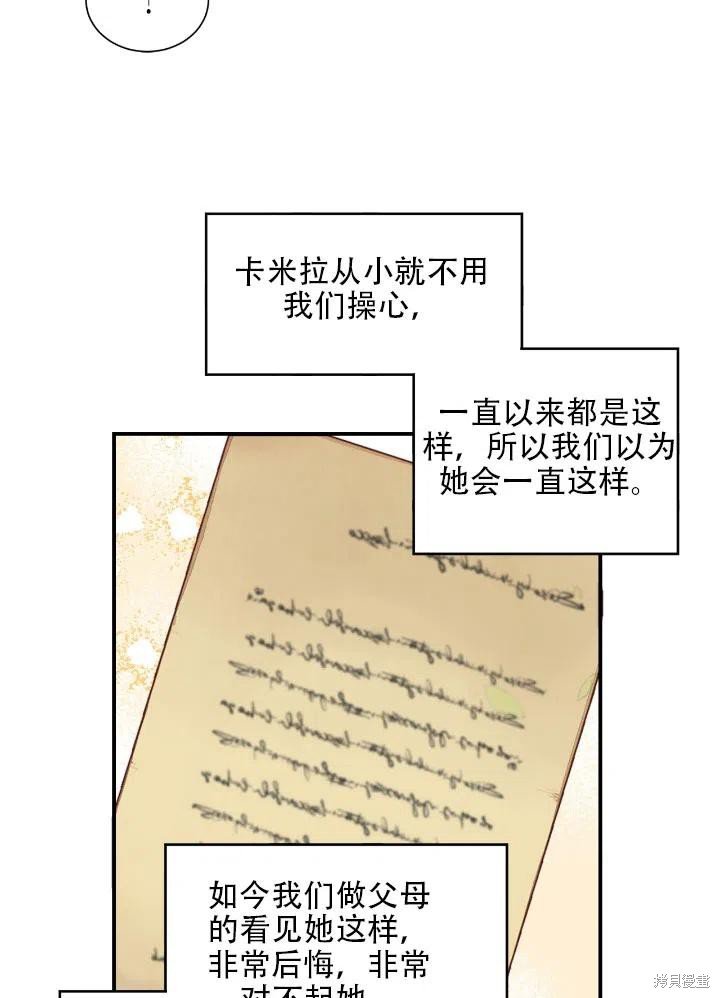 卡米拉从小就不用
我们操心，
一直以来都是这
样，所以我们以为
她会一直这样。
如今我们做父母
的看见她这样，
非常后悔，非常
对不起她
拷貝漫畫